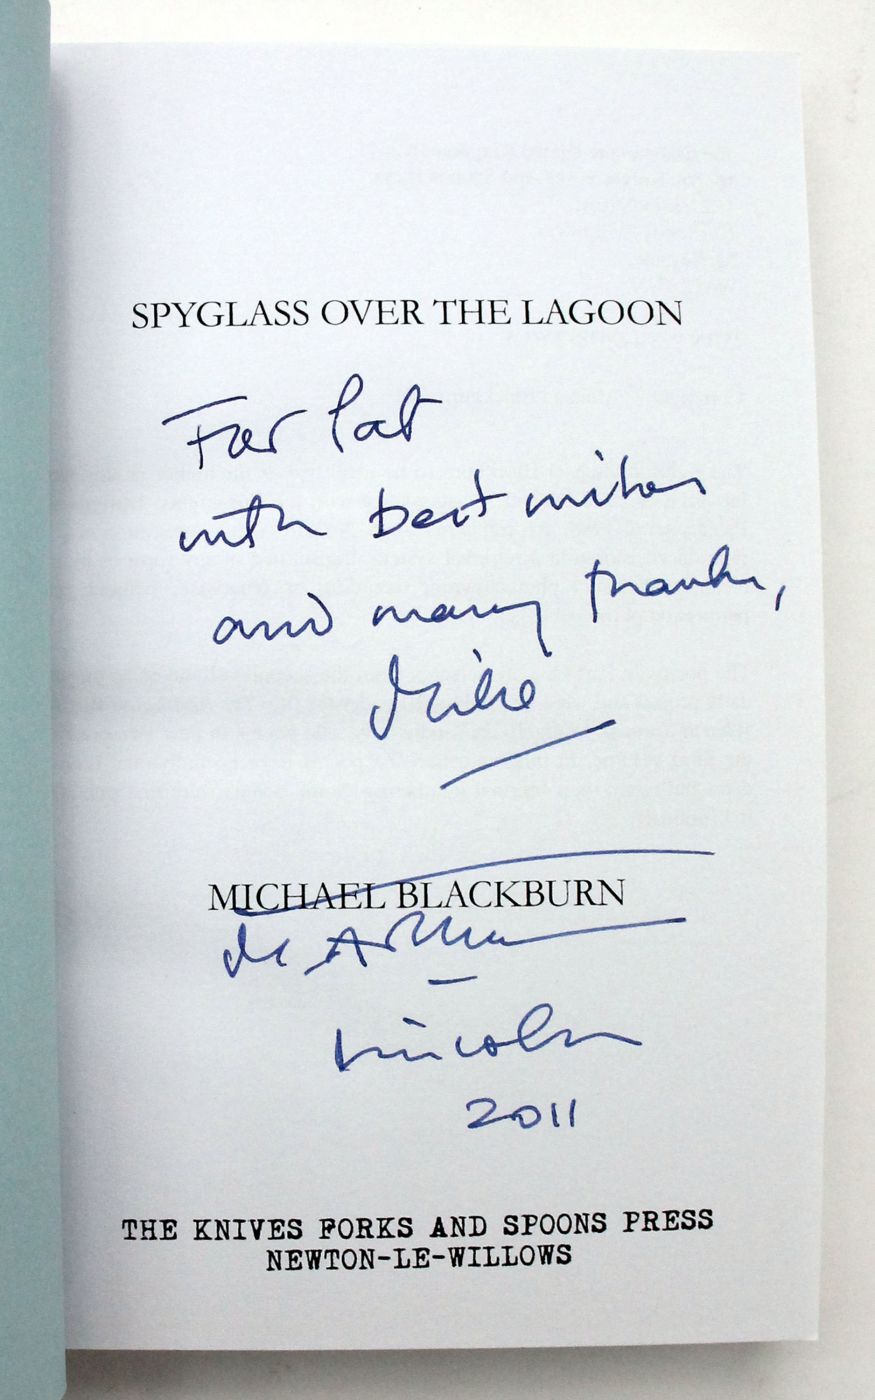 SPYGLASS OVER THE LAGOON
For Pat
with best wishes
and many thanks,
Mike
MICHAEL BLACKBURN
Lincoln
2011
THE KNIVES FORKS AND SPOONS PRESS
NEWTON-LE-WILLOWS